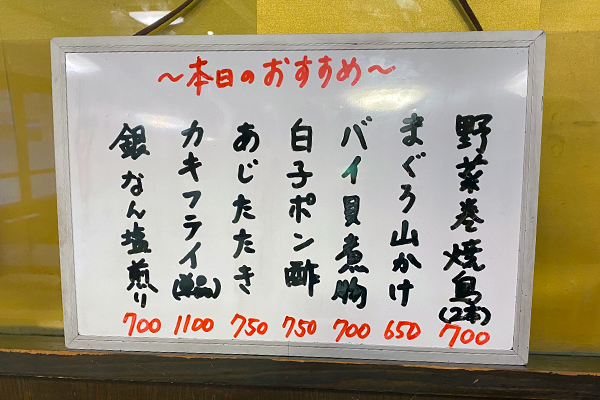 ～本日のおすすめ～
野菜巻焼鳥(2本) 700
まぐろ山かけ 650
バイ貝煮物 700
白子ポン酢 750
あじたたき 750
カキフライ(単品) 1100
銀なん塩煎り 700